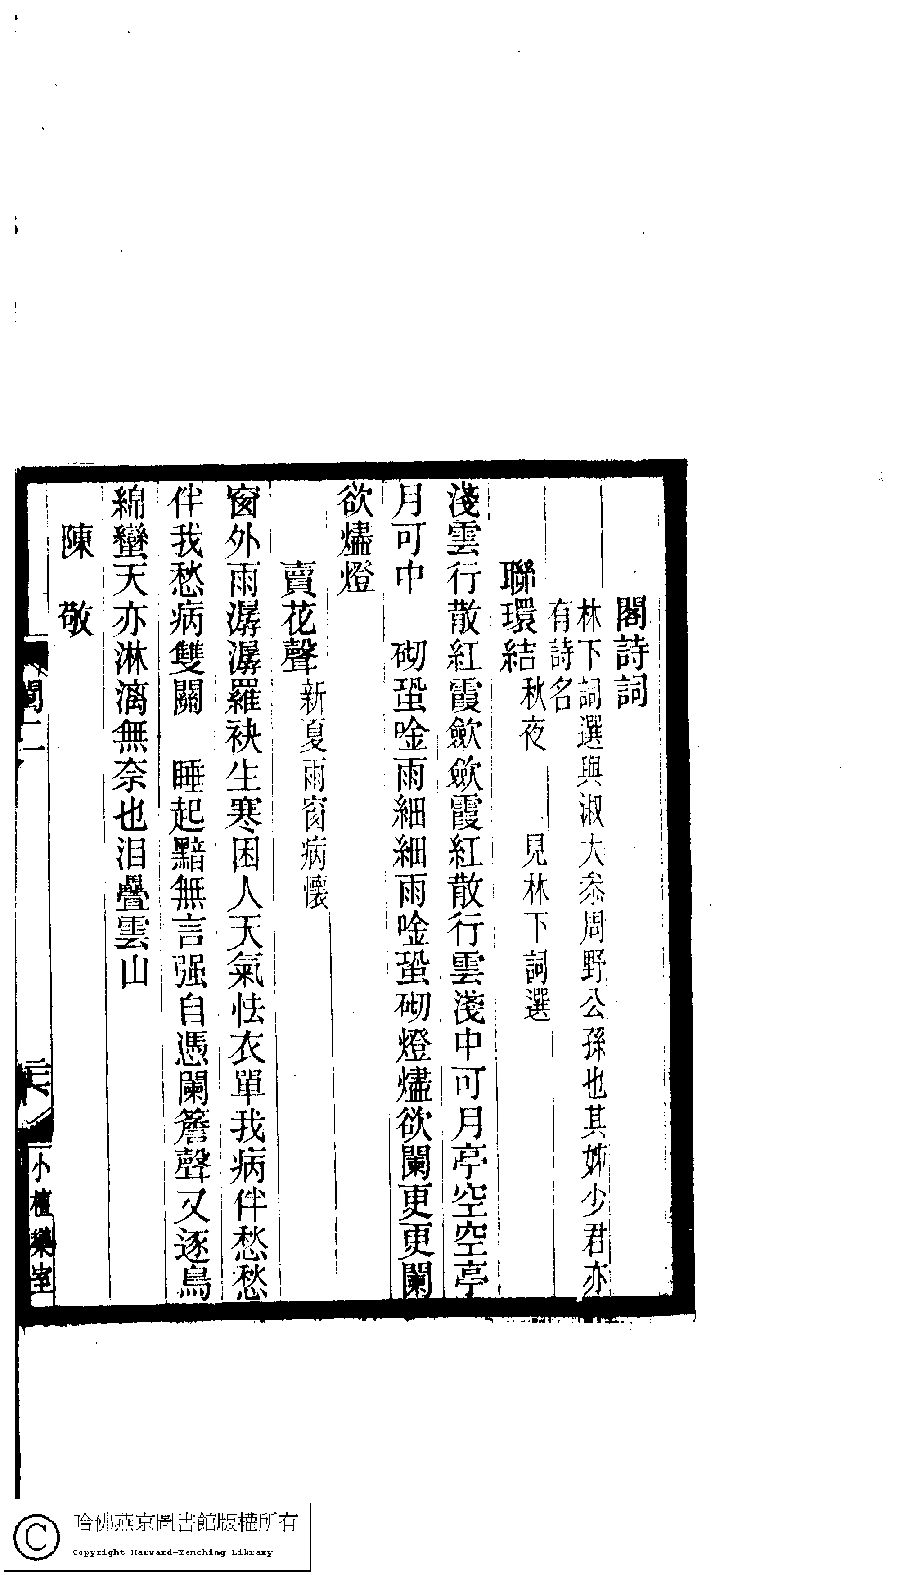 閣詩詞
林下詞選與淑大叅周野公孫也其姊少君亦
有詩名
聯環結秋夜 見林下詞選
淺雲行散紅霞歛歛霞紅散行雲淺中可月亭空空亭
月可中 砌蛩唫雨細細雨唫蛩砌燈燼欲闌更更闌
欲燼燈
賣花聲新夏雨窗病懷
窗外雨潺潺羅袂生寒困人天氣怯衣單我病伴愁愁
伴我愁病雙關 睡起黯無言强自憑闌簷聲又逐鳥
綿蠻天亦淋漓無奈也泪疊雲山
陳 敬
閨二
小檀欒室
哈佛燕京圖書館版權所有
Copyright Harvard-Yenching Library